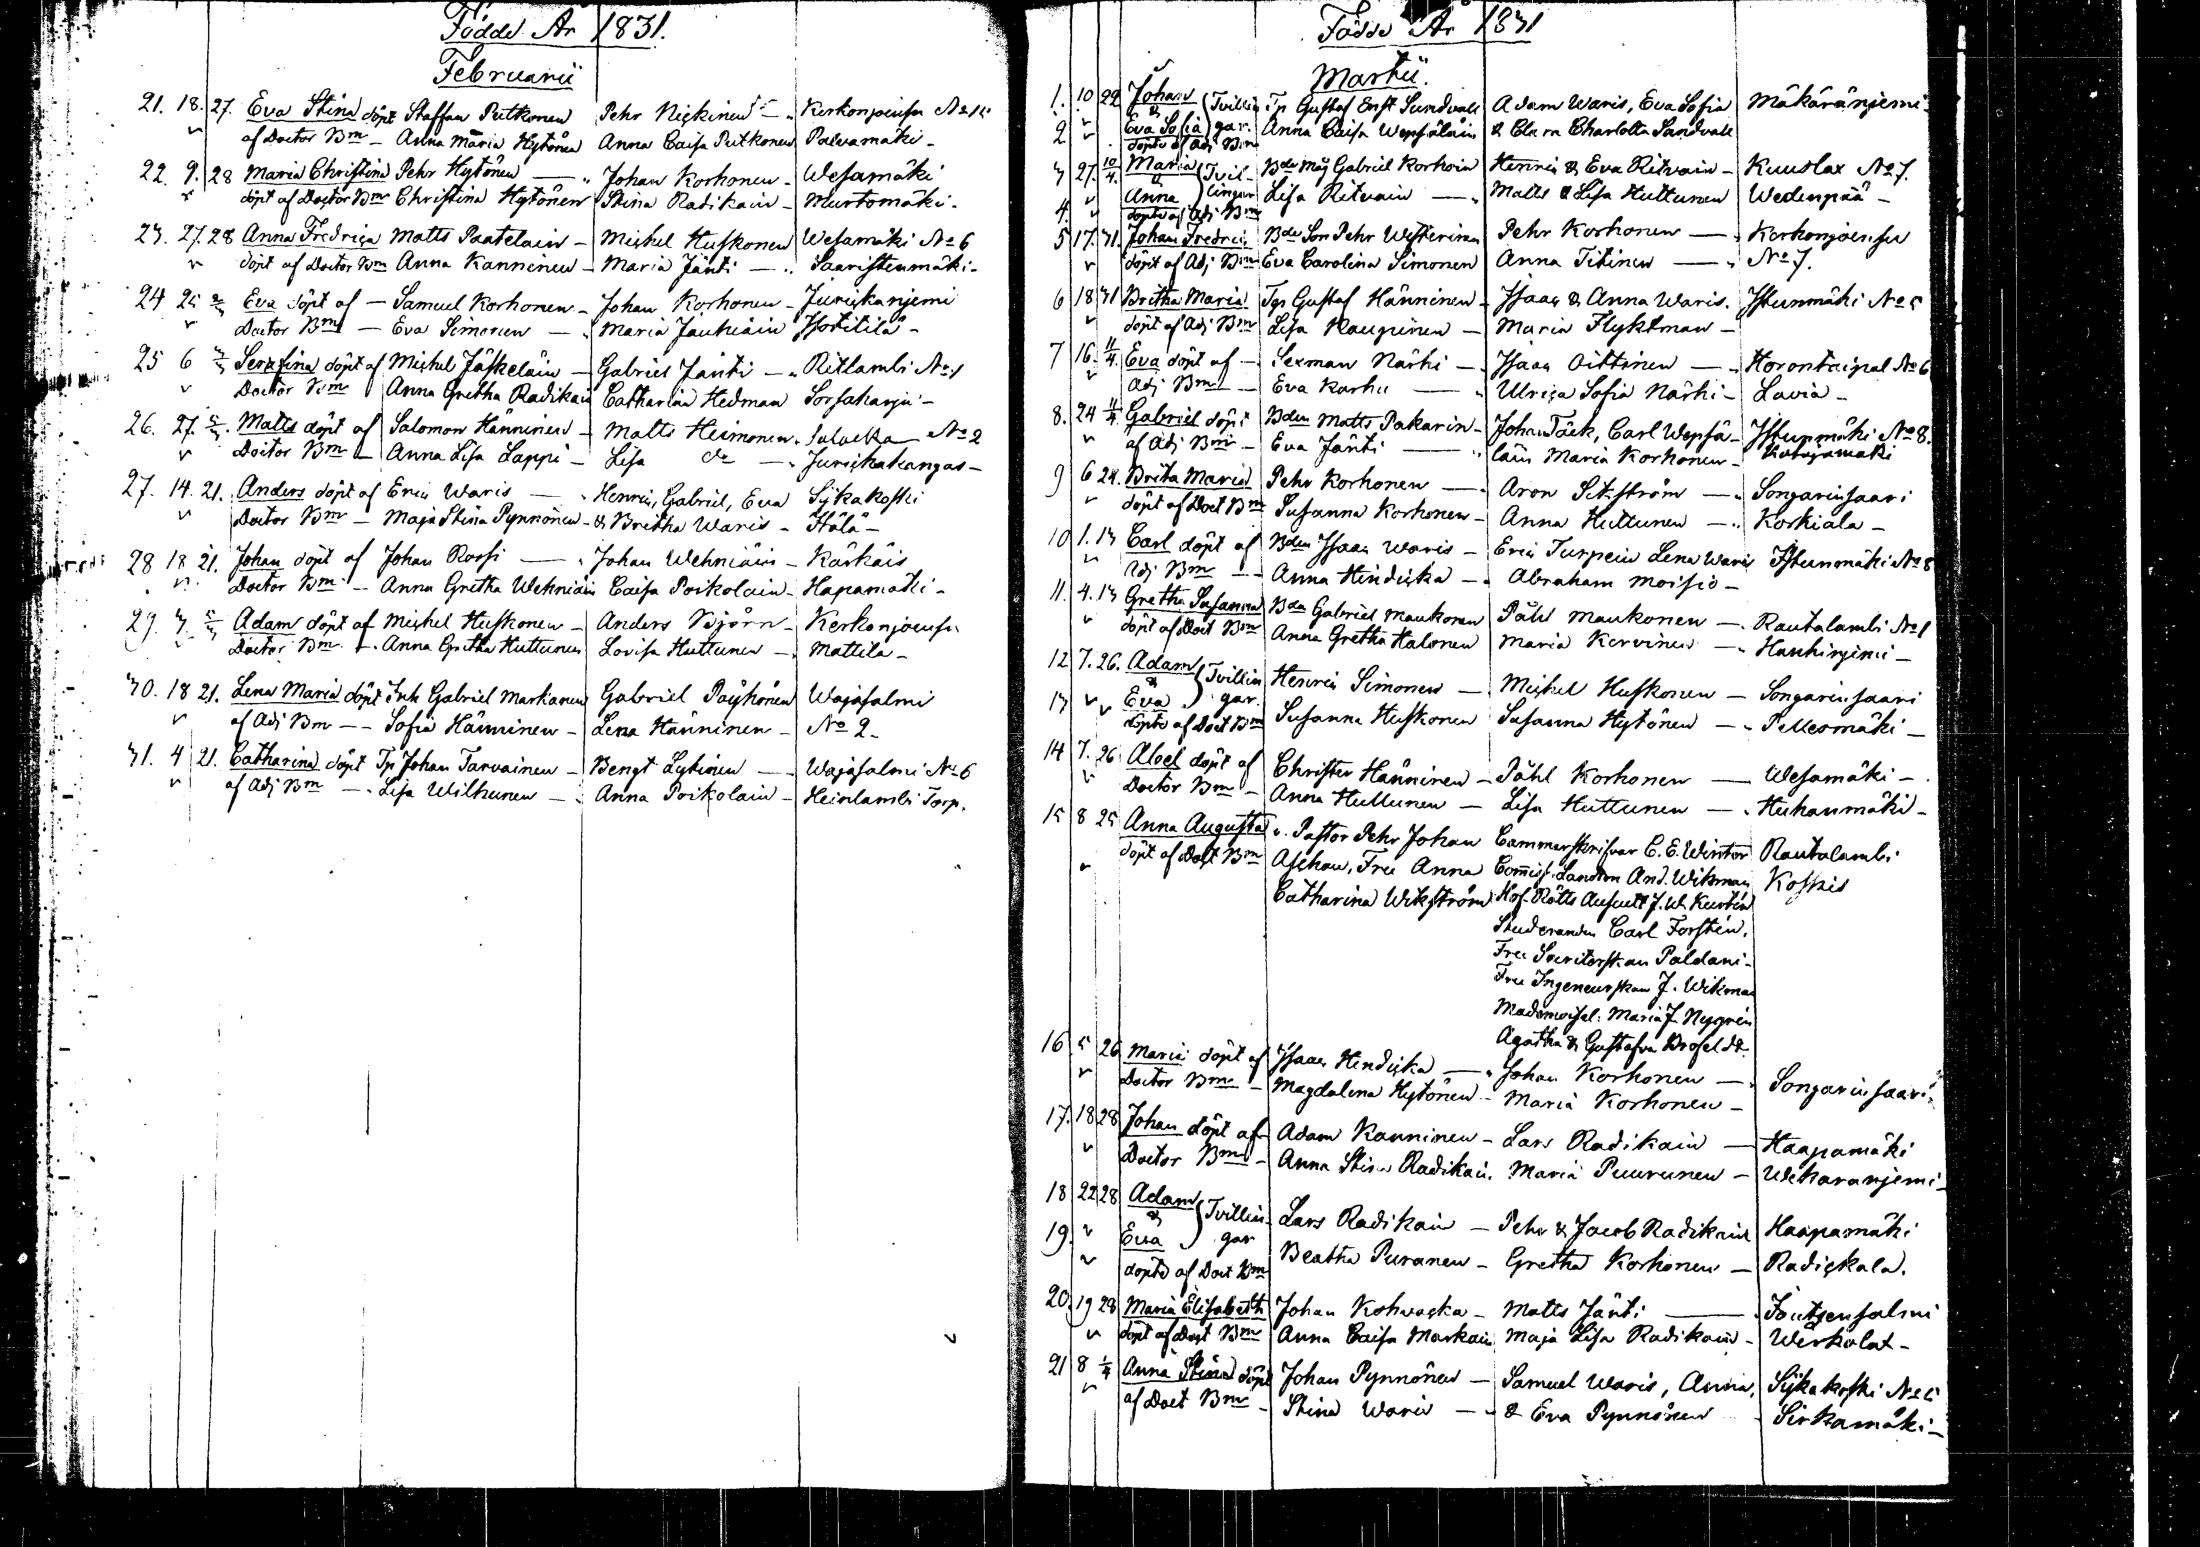 Födde År 1831.
Februarii
21. 18. 27. Eva Stina döpt Staffan Putkonen Pehr Nickinen Kerkonjoensu No 15
af Doctor Bm Anna Maria Hytönen Anna Caisa Putkonen Palvamäki
22 9. 28 Maria Christina Pehr Hytönen Johan Korhonen Wesamäki
döpt af Doctor Bm Christina Hytönen Stina Radikain Murtomäki
23. 27. 28 Anna Fredrica Matts Paatelain Michel Huskonen Wesamäki No 6
döpt af Doctor Bm Anna Kanninen Maria Jänti Saaristenmäki
24 25 Eva döpt af Samuel Korhonen Johan Korhonen Jurickanjemi
Doctor Bm Eva Simonen Maria Jauhiain
25 6 Serafina döpt af Michel Jäskelain Gabriel Jänti Ritlambi No 1
Doctor Bm Anna Gretha Radikain Catharina Hedman Sorsaharju
26. 27. Matts döpt af Salomon Hänninen Matts Heimonen No 2
Doctor Bm Anna Lisa Lappi Lisa do Jurickakangas
27. 14. 21. Anders döpt af Eric Waris Henric, Gabriel, Eva Sijkakoski
Doctor Bm Maja Stina Pynnönen & Britha Waris Hälä
28 18 21. Johan döpt af Johan Rossi Johan Wehniäin Kärkäis
Doctor Bm Anna Gretha Wehniäin Caisa Poikolain Hapamäki
29. 3. Adam döpt af Michel Huskonen Anders Björn Kerkonjoensu
Doctor Bm Anna Gretha Huttunen Lovisa Huttunen Mattila
30. 18 21. Lena Maria döpt Inh Gabriel Markanen Gabriel Päykönen Wajasalmi
af Adj Bm Sofia Hänninen Lena Hänninen No 2
31. 4 21. Catharina döpt Tp Johan Tarvainen Bengt Lytinen Wajasalmi No 6
af Adj Bm Lisa Wilhunen Anna Poikolain Heinlambi Torp.
Födde År 1831
Martii.
1. 10 22 Johan Tvillin Tp Gustaf Enst Sundvall Adam Waris, Eva Sofia Mäkäränjemi
2 & Eva Sofia gar. Anna Caisa Wepsäläin & Clara Charlotta Sandvall
döpte af Adj Bm
3 27. 10/4. Maria Tvil- Bde Måg Gabriel Korhoin Henric & Eva Ritvain Kuuslax No 7.
4. & Anna lingar Lisa Ritvain Matts & Lisa Huttunen Wedenpää
döpte af Adj Bm
5 17. 31. Johan Fredric Bde Son Pehr Westerinen Pehr Korhonen Korkonjoensu
döpt af Adj Bm Eva Carolina Simonen Anna Titinen No 7.
6 18 31 Britha Maria Tp Gustaf Hänninen Isaac & Anna Waris. Istunmäki No 5
döpt af Adj Bm Lisa Kaupinen Maria Flyktman
7 16. 11/4. Eva döpt af Sexman Närhi Isaac Oittinen Horontaipal No 6
Adj Bm Eva Karhu Ulrica Sofia Närhi Lavia
8. 24 11/4 Gabriel döpt Bden Matts Pakarin Johan Täck, Carl Wepsä- Istunmäki No 8.
af Adj Bm Eva Jänti läin Maria Korhonen Katajamäki
9 6 24. Brita Maria Pehr Korhonen Aron Sitström Songarinsaari
döpt af Doct Bm Susanna Korhonen Anna Huttunen Korkiala
10 1. 13 Carl döpt af Bden Isaac Waris Eric Turpein Lena Waris Istunmäki No 8
Adj Bm Anna Hindicka Abraham Moisio
11. 4. 13 Gretha Susanna Bde Gabriel Maukonen Påhl Maukonen Rautalambi No 1
döpt af Doct Bm Anna Gretha Halonen Maria Kervinen Hanhinjemi
12 7. 26. Adam Tvillin Henric Simonen Michel Huskonen Songarinsaari
13 & Eva gar. Susanna Huskonen Susanna Hytönen Pellesmäki
döpte af Doct Bm
14 7. 26. Abel döpt af Christer Hänninen Påhl Korhonen Wesamäki
Doctor Bm Anna Huttunen Lisa Huttunen Huhanmäki
15 8 25 Anna Augusta v. Pastor Pehr Johan Cammarskrifvar C. E. Winter Rautalambi
döpt af Doct Bm Aschan, Fru Anna Comiss. Landtm And. Wikman Koskis
Catharina Wikström Hof-Rätts Auscult J. W. Kurtén
Studeranden Carl Forstén.
Fru Secriterskan Paldani
Fru Ingeneurskan J. Wikman
Mademoisel: Maria J. Nygrén
Agatha & Gustafva Brofeldt
16 5 26 Maria döpt af Isaac Hendicka Johan Korhonen Songarinsaari
Doctor Bm Magdalena Hytönen Maria Korhonen
17. 18 28 Johan döpt af Adam Kanninen Lars Radikain Haapamäki
Doctor Bm Anna Stina Radikain Maria Puurunen Wekaranjemi
18 22 28 Adam Tvillin- Lars Radikain Pehr & Jacob Radikain Haapamäki
19. & Eva gar Beatha Puranen Gretha Korhonen Radickala.
döpte af Doct Bm
20. 19 28 Maria Elisabeth Johan Kohvacka Matts Jänti Joutsensalmi
döpt af Doct Bm Anna Caisa Markain Maja Lisa Radikain Werkalat
21 8 1/4 Anna Stina döpt Johan Pynnönen Samuel Waris, Anna, Sijkakoski No 5
af Doct Bm Stina Waris & Eva Pynnönen Sirkamäki